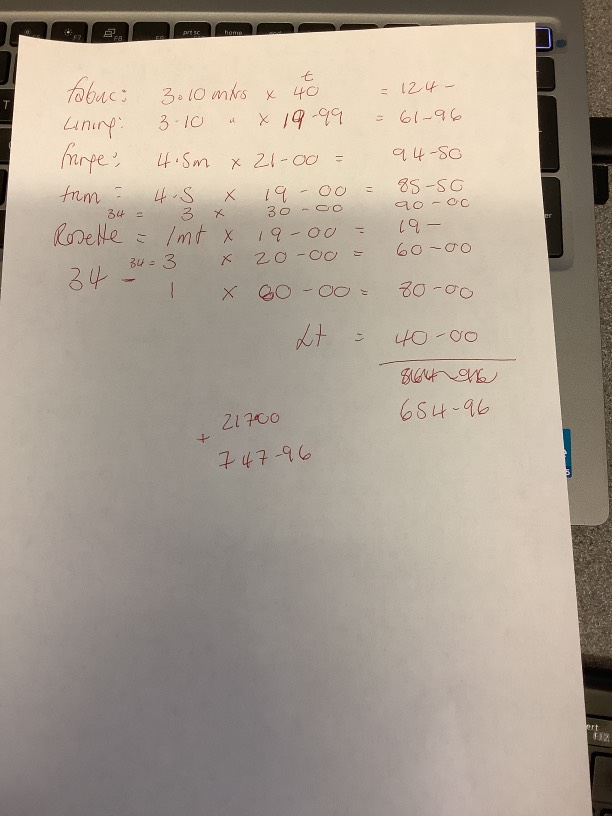 prt sc
home
F7
F8
t
fabric: 3.10 mtrs x 40 = 124-
Lining: 3-10 " x 19-99 = 61-96
fringe: 4.5m x 21-00 = 94-50
trim = 4.5 x 19-00 = 85-50
34 = 3 x 30-00 90-00
Rosette = 1mt x 19-00 = 19-
34 = 3 x 20-00 = 60-00
34 - 1 x 60-00 = 80-00
Lt = 40-00
654-96
21700
+ 747-96